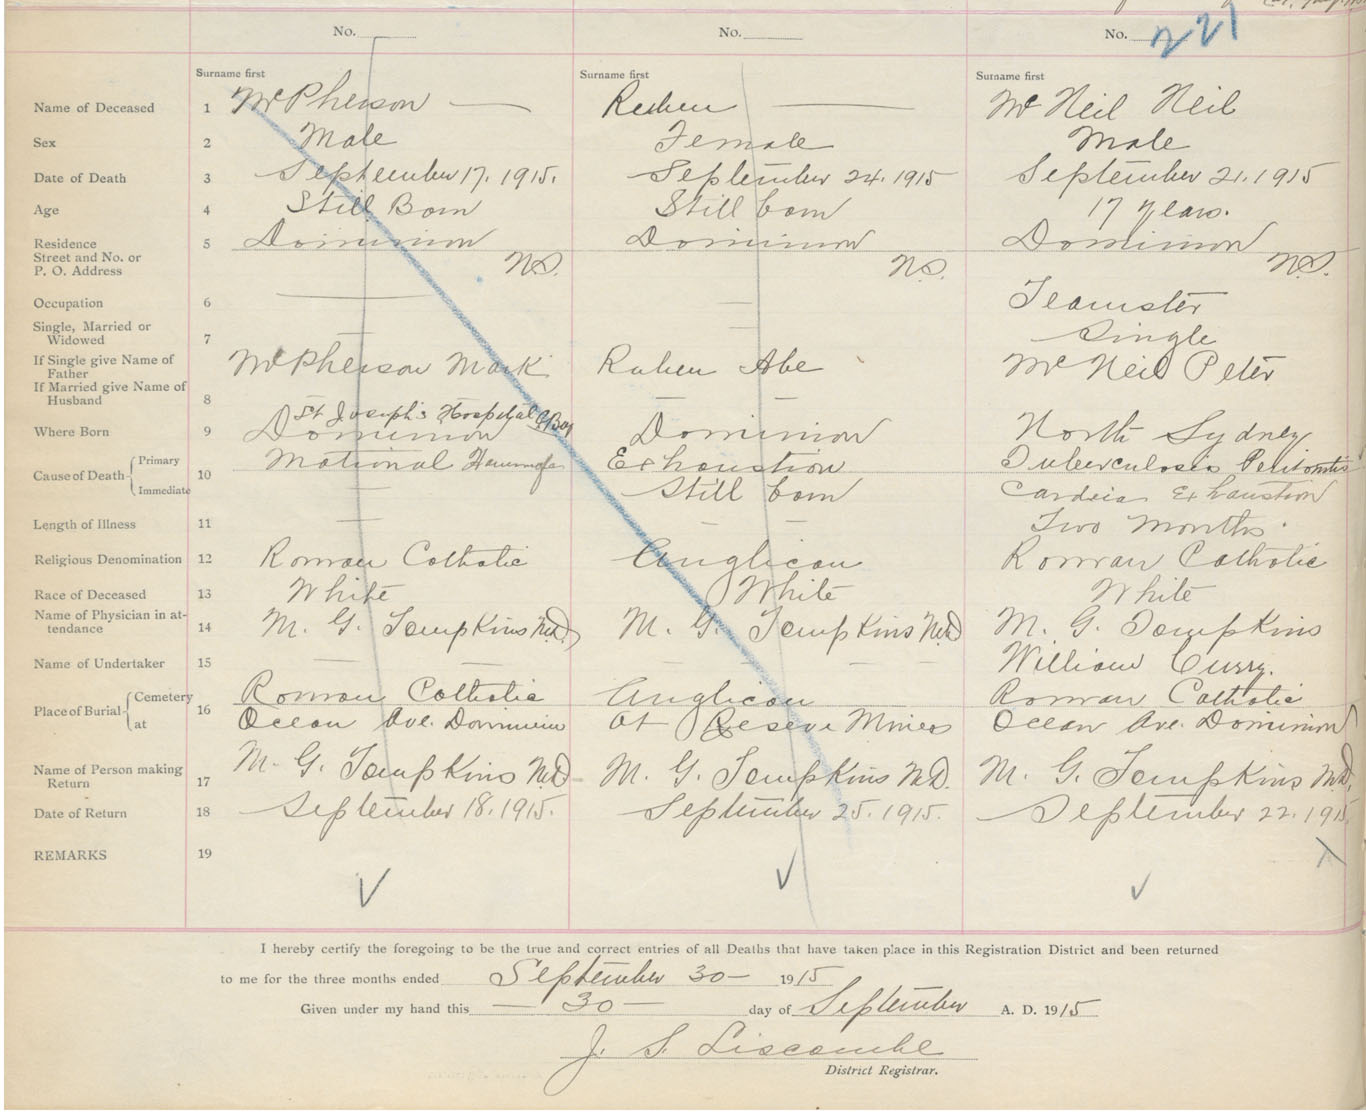 No. No. No. 221
Surname first Surname first Surname first
Name of Deceased 1 McPherson — Ruben — McNeil Neil
Sex 2 Male Female Male
Date of Death 3 September 17. 1915. September 24. 1915 September 21. 1915
Age 4 Still Born Still born 17 years.
Residence 5 Dominion Dominion Dominion
Street and No. or
P. O. Address N.S. N.S. N.S.
Occupation 6 — — Teamster
Single, Married or
Widowed 7 — — Single
If Single give Name of
Father McPherson Mark Ruben Abe McNeil Peter
If Married give Name of
Husband 8 — — — —
St Joseph's Hospital G. Bay
Where Born 9 Dominion Dominion North Sydney
Cause of Death Primary 10 Exhaustion Tuberculosis Peritonitis
Immediate — Still born Cardiac Exhaustion
Length of Illness 11 — — — Two months.
Religious Denomination 12 Roman Catholic Anglican Roman Catholic
Race of Deceased 13 White White White
Name of Physician in at-
tendance 14 M. G. Tompkins M.D. M. G. Tompkins M.D. M. G. Tompkins
Name of Undertaker 15 — — — — — — William Curry.
Place of Burial Cemetery 16 Roman Catholic Anglican Roman Catholic
at Ocean Ave. Dominion at Reserve Mines Ocean Ave. Dominion
Name of Person making
Return 17 M. G. Tompkins M.D. M. G. Tompkins M.D. M. G. Tompkins M.D.
Date of Return 18 September 18. 1915. September 25. 1915. September 22. 1915.
REMARKS 19
I hereby certify the foregoing to be the true and correct entries of all Deaths that have taken place in this Registration District and been returned
to me for the three months ended September 30 — 1915
Given under my hand this — 30 — day of September A. D. 1915
J. S. Liscombe
District Registrar.